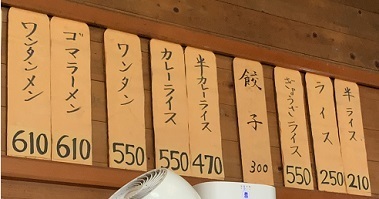 ワンタンメン
610
ゴマラーメン
610
ワンタン
550
カレーライス
550
半カレーライス
470
餃子
300
ぎょうざライス
550
ライス
250
半ライス
210